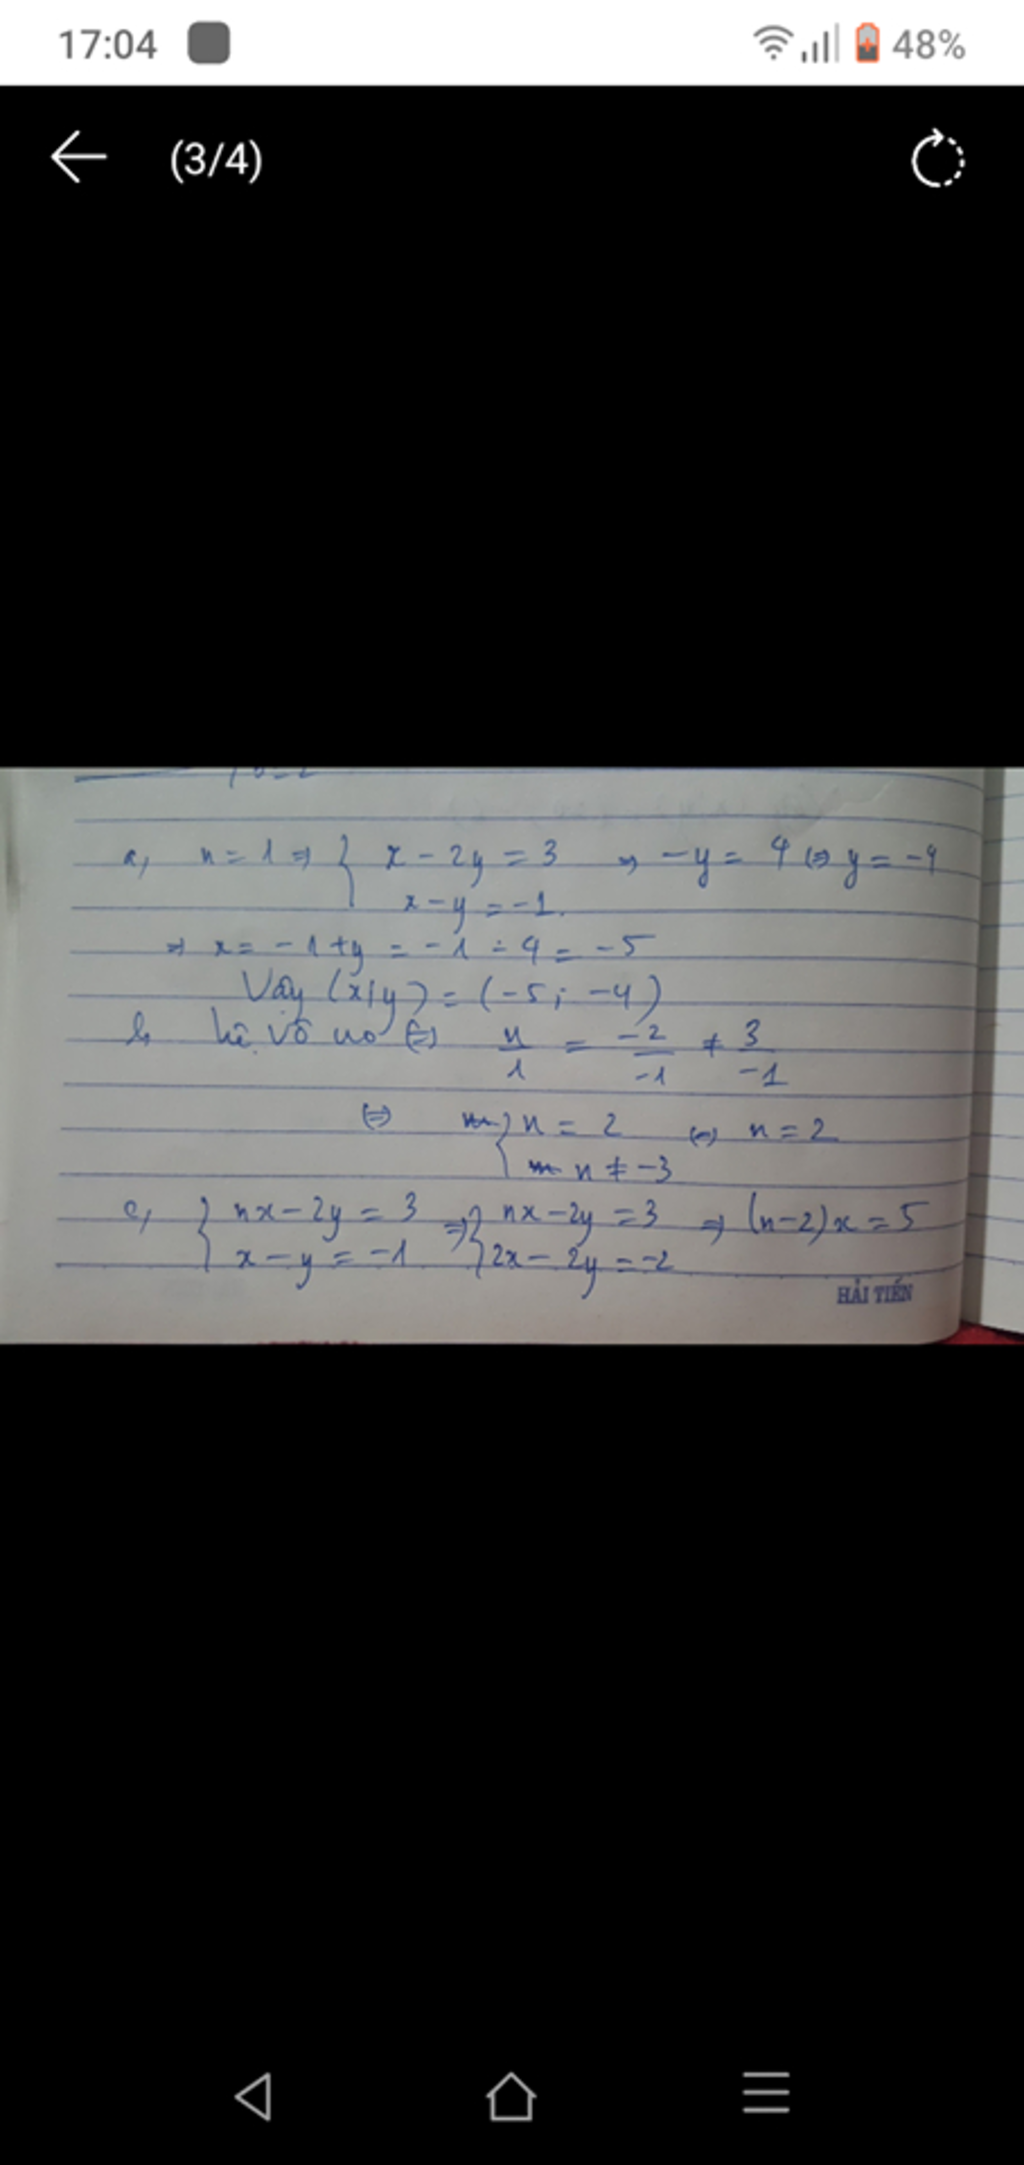 17:04 48%
(3/4)
a, n = 1 => { x - 2y = 3 => -y = 4 <=> y = -4
x - y = -1.
=> x = -1 + y = -1 - 4 = -5
Vậy (x;y) = (-5; -4)
b, hệ vô no <=> n/1 = -2/-1 ≠ 3/-1
<=> { n = 2 <=> n = 2
n ≠ -3
c, { nx - 2y = 3 => { nx - 2y = 3 => (n-2)x = 5
x - y = -1 2x - 2y = -2
HẢI TIẾN